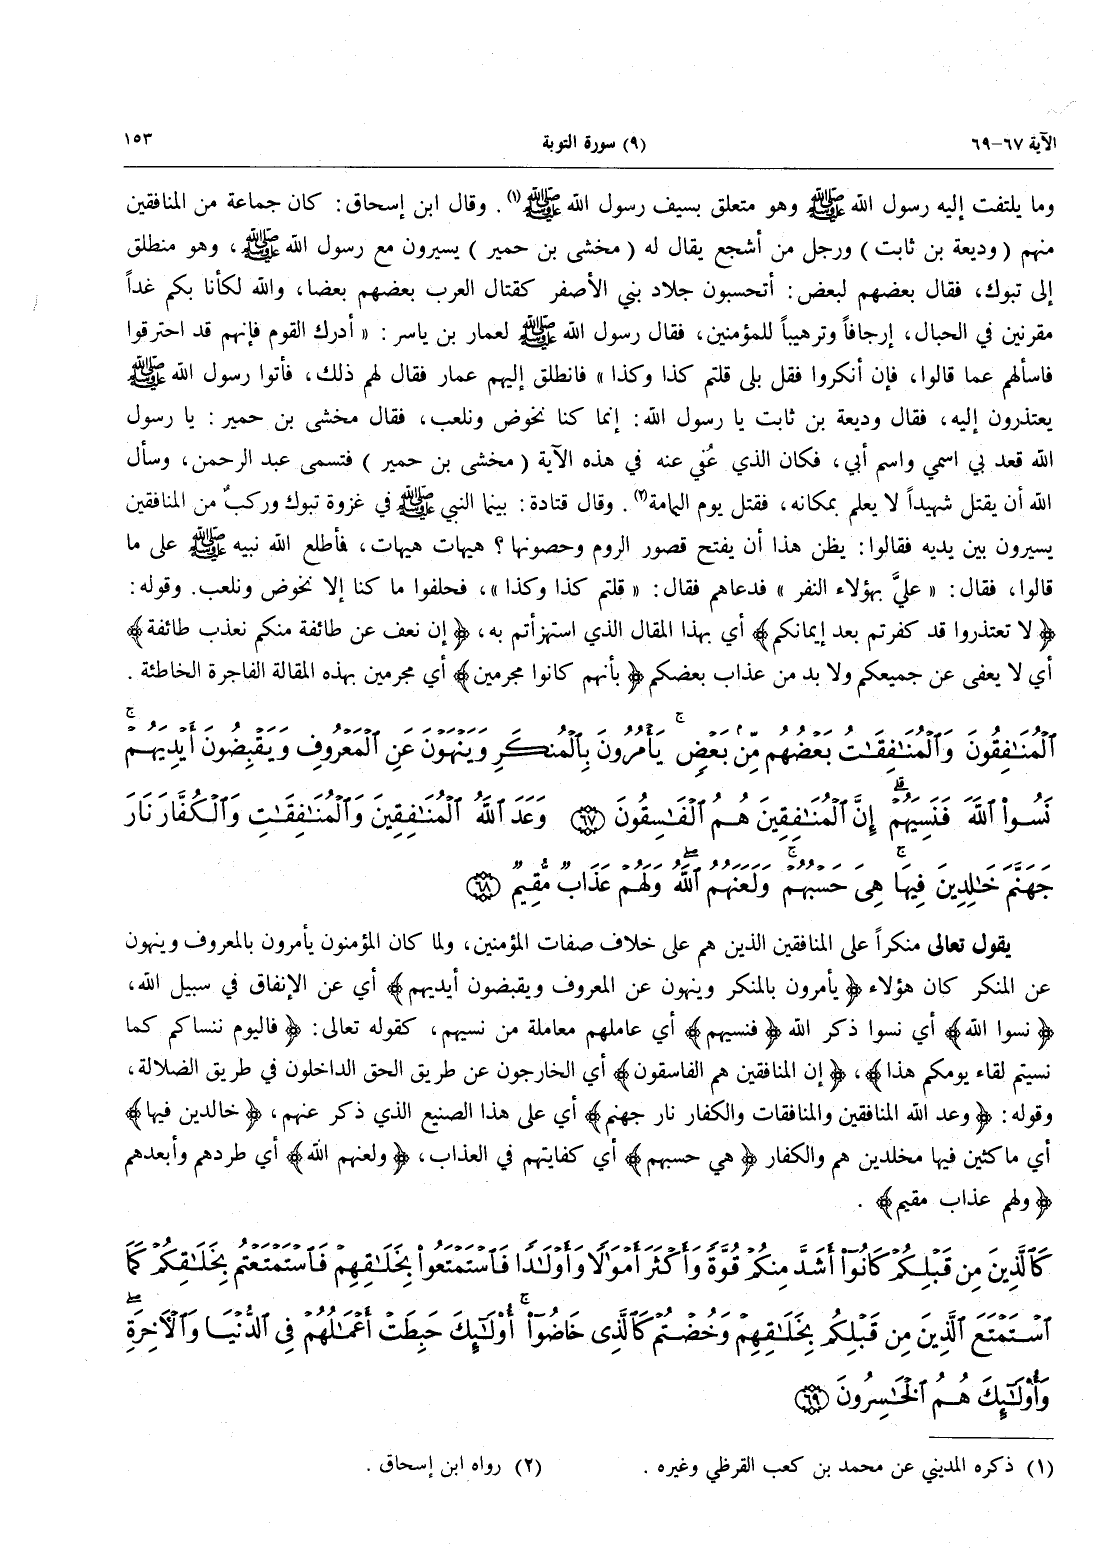 الآية ٦٧-٦٩ (٩) سورة التوبة ١٥٣
وما يلتفت إليه رسول الله ﷺ وهو متعلق بسيف رسول الله ﷺ(١). وقال ابن إسحاق: كان جماعة من المنافقين
منهم (وديعة بن ثابت) ورجل من أشجع يقال له (مخشى بن حمير) يسيرون مع رسول الله ﷺ، وهو منطلق
إلى تبوك، فقال بعضهم لبعض: أتحسبون جلاد بني الأصفر كقتال العرب بعضهم بعضا، والله لكأنا بكم غداً
مقرنين في الحبال، إرجافاً وترهيباً للمؤمنين، فقال رسول الله ﷺ لعمار بن ياسر: « أدرك القوم فإنهم قد احترقوا
فاسألهم عما قالوا، فإن أنكروا فقل بلى قلتم كذا وكذا » فانطلق إليهم عمار فقال لهم ذلك، فأتوا رسول الله ﷺ
يعتذرون إليه، فقال وديعة بن ثابت يا رسول الله: إنما كنا نخوض ونلعب، فقال مخشى بن حمير: يا رسول
الله قعد بي اسمي واسم أبي، فكان الذي عُفي عنه في هذه الآية (مخشى بن حمير) فتسمى عبد الرحمن، وسأل
الله أن يقتل شهيداً لا يعلم بمكانه، فقتل يوم اليمامة(٢). وقال قتادة: بينما النبي ﷺ في غزوة تبوك وركبٌ من المنافقين
يسيرون بين يديه فقالوا: يظن هذا أن يفتح قصور الروم وحصونها؟ هيهات هيهات، فأطلع الله نبيه ﷺ على ما
قالوا، فقال: « عليَّ بهؤلاء النفر » فدعاهم فقال: « قلتم كذا وكذا »، فحلفوا ما كنا إلا نخوض ونلعب. وقوله:
﴿ لا تعتذروا قد كفرتم بعد إيمانكم﴾ أي بهذا المقال الذي استهزأتم به، ﴿ إن نعف عن طائفة منكم نعذب طائفة﴾
أي لا يعفى عن جميعكم ولا بد من عذاب بعضكم ﴿ بأنهم كانوا مجرمين﴾ أي مجرمين بهذه المقالة الفاجرة الخاطئة.
ٱلْمُنَـٰفِقُونَ وَٱلْمُنَـٰفِقَـٰتُ بَعْضُهُم مِّنۢ بَعْضٍ ۚ يَأْمُرُونَ بِٱلْمُنكَرِ وَيَنْهَوْنَ عَنِ ٱلْمَعْرُوفِ وَيَقْبِضُونَ أَيْدِيَهُمْ ۚ
نَسُوا۟ ٱللَّهَ فَنَسِيَهُمْ ۗ إِنَّ ٱلْمُنَـٰفِقِينَ هُمُ ٱلْفَـٰسِقُونَ ﴿٦٧﴾ وَعَدَ ٱللَّهُ ٱلْمُنَـٰفِقِينَ وَٱلْمُنَـٰفِقَـٰتِ وَٱلْكُفَّارَ نَارَ
جَهَنَّمَ خَـٰلِدِينَ فِيهَا ۚ هِىَ حَسْبُهُمْ ۚ وَلَعَنَهُمُ ٱللَّهُ ۖ وَلَهُمْ عَذَابٌ مُّقِيمٌ ﴿٦٨﴾
يقول تعالى منكراً على المنافقين الذين هم على خلاف صفات المؤمنين، ولما كان المؤمنون يأمرون بالمعروف وينهون
عن المنكر كان هؤلاء ﴿ يأمرون بالمنكر وينهون عن المعروف ويقبضون أيديهم﴾ أي عن الإنفاق في سبيل الله،
﴿ نسوا الله﴾ أي نسوا ذكر الله ﴿ فنسيهم﴾ أي عاملهم معاملة من نسيهم، كقوله تعالى: ﴿ فاليوم ننساكم كما
نسيتم لقاء يومكم هذا﴾، ﴿ إن المنافقين هم الفاسقون﴾ أي الخارجون عن طريق الحق الداخلون في طريق الضلالة،
وقوله: ﴿ وعد الله المنافقين والمنافقات والكفار نار جهنم﴾ أي على هذا الصنيع الذي ذكر عنهم، ﴿ خالدين فيها﴾
أي ماكثين فيها مخلدين هم والكفار ﴿ هي حسبهم﴾ أي كفايتهم في العذاب، ﴿ ولعنهم الله﴾ أي طردهم وأبعدهم
﴿ ولهم عذاب مقيم﴾.
كَٱلَّذِينَ مِن قَبْلِكُمْ كَانُوٓا۟ أَشَدَّ مِنكُمْ قُوَّةً وَأَكْثَرَ أَمْوَٰلًا وَأَوْلَـٰدًا فَٱسْتَمْتَعُوا۟ بِخَلَـٰقِهِمْ فَٱسْتَمْتَعْتُم بِخَلَـٰقِكُمْ كَمَا
ٱسْتَمْتَعَ ٱلَّذِينَ مِن قَبْلِكُم بِخَلَـٰقِهِمْ وَخُضْتُمْ كَٱلَّذِى خَاضُوٓا۟ ۚ أُو۟لَـٰٓئِكَ حَبِطَتْ أَعْمَـٰلُهُمْ فِى ٱلدُّنْيَا وَٱلْـَٔاخِرَةِ ۖ
وَأُو۟لَـٰٓئِكَ هُمُ ٱلْخَـٰسِرُونَ ﴿٦٩﴾
(١) ذكره المديني عن محمد بن كعب القرظي وغيره. (٢) رواه ابن إسحاق.